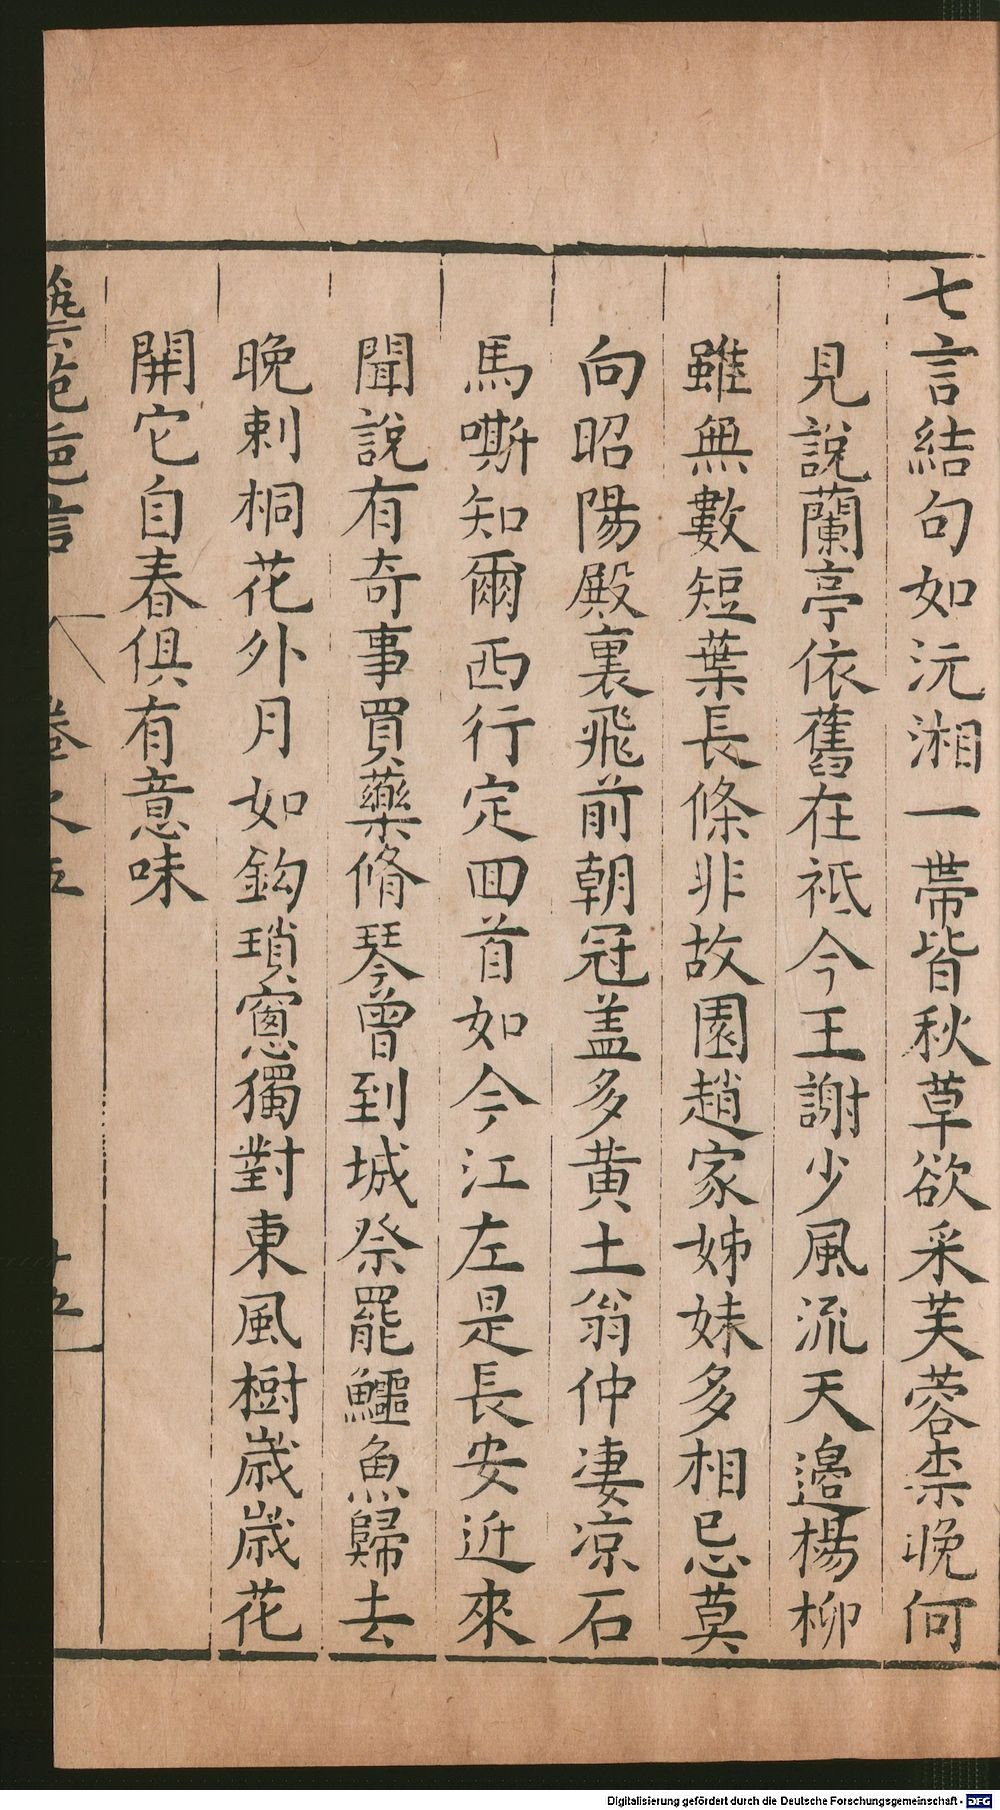 七言結句如沅湘一帶皆秋草欲采芙蓉柰晚何
見說蘭亭依舊在祗今王謝少風流天邊楊柳
雖無數短葉長條非故園趙家姊妹多相忌莫
向昭陽殿裏飛前朝冠盖多黄土翁仲凄凉石
馬嘶知爾西行定回首如今江左是長安近來
聞說有奇事買藥脩琴曾到城祭罷鱷魚歸去
晚刺桐花外月如鈎瑣窻獨對東風樹歲歲花
開它自春俱有意味
藝苑巵言 卷之五 十五
Digitalisierung gefördert durch die Deutsche Forschungsgemeinschaft - DFG